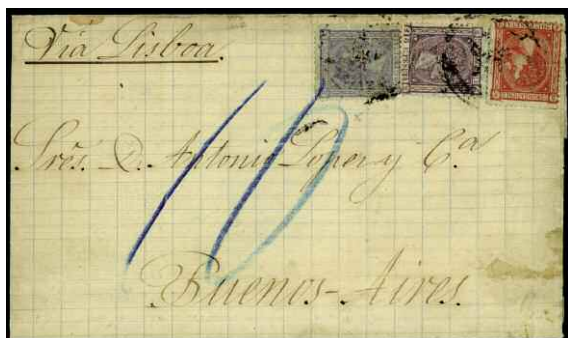 Via Lisboa.
Sres. D. Antonio Lopez y Ca
10
Buenos-Aires.